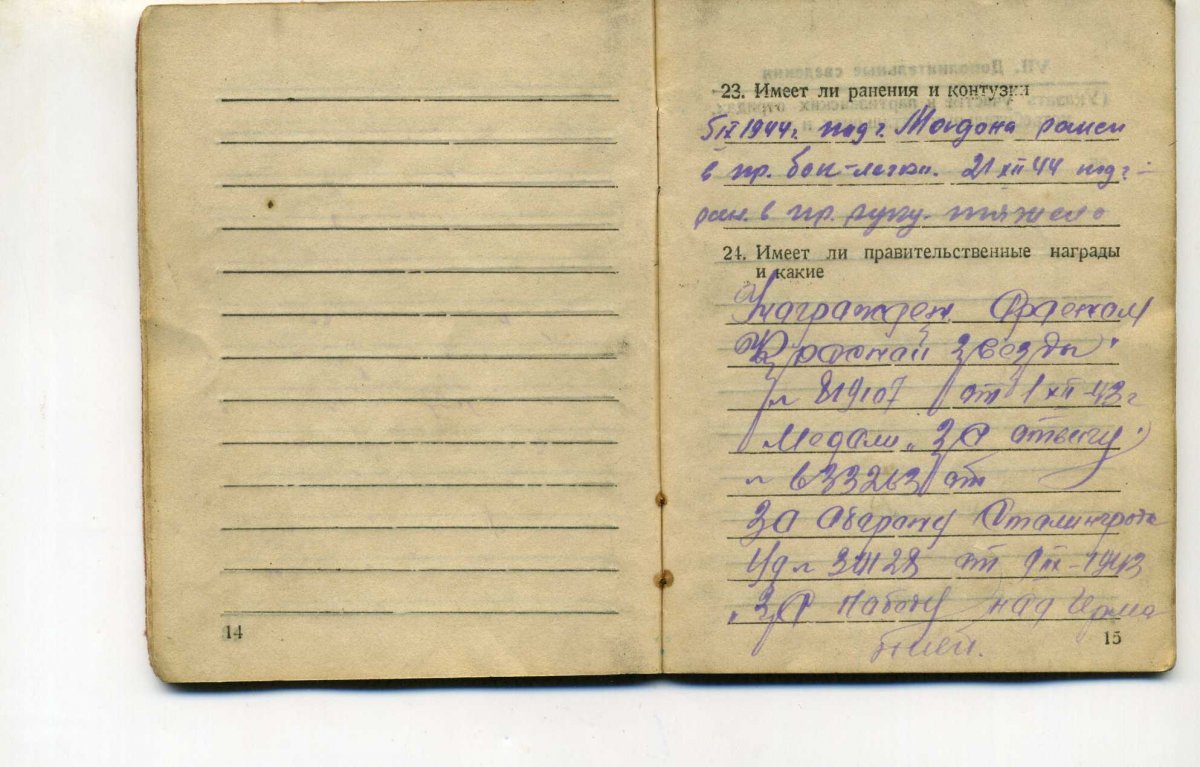 14
23. Имеет ли ранения и контузии
5 IX 1944 г. под г. Мадона ранен
в пр. бок – легко. 21 XII 44 под г. –
ран. в пр. руку. тяжело
24. Имеет ли правительственные награды
и какие
Награжден Орденом
Красной звезды"
№ 819107 от 1 XII–43 г
Медали „За отвагу"
№ 633263 от
За Оборону Сталинграда
Уд № 31128 от 9 IX–1943
„За победу над Герма
нией.
15